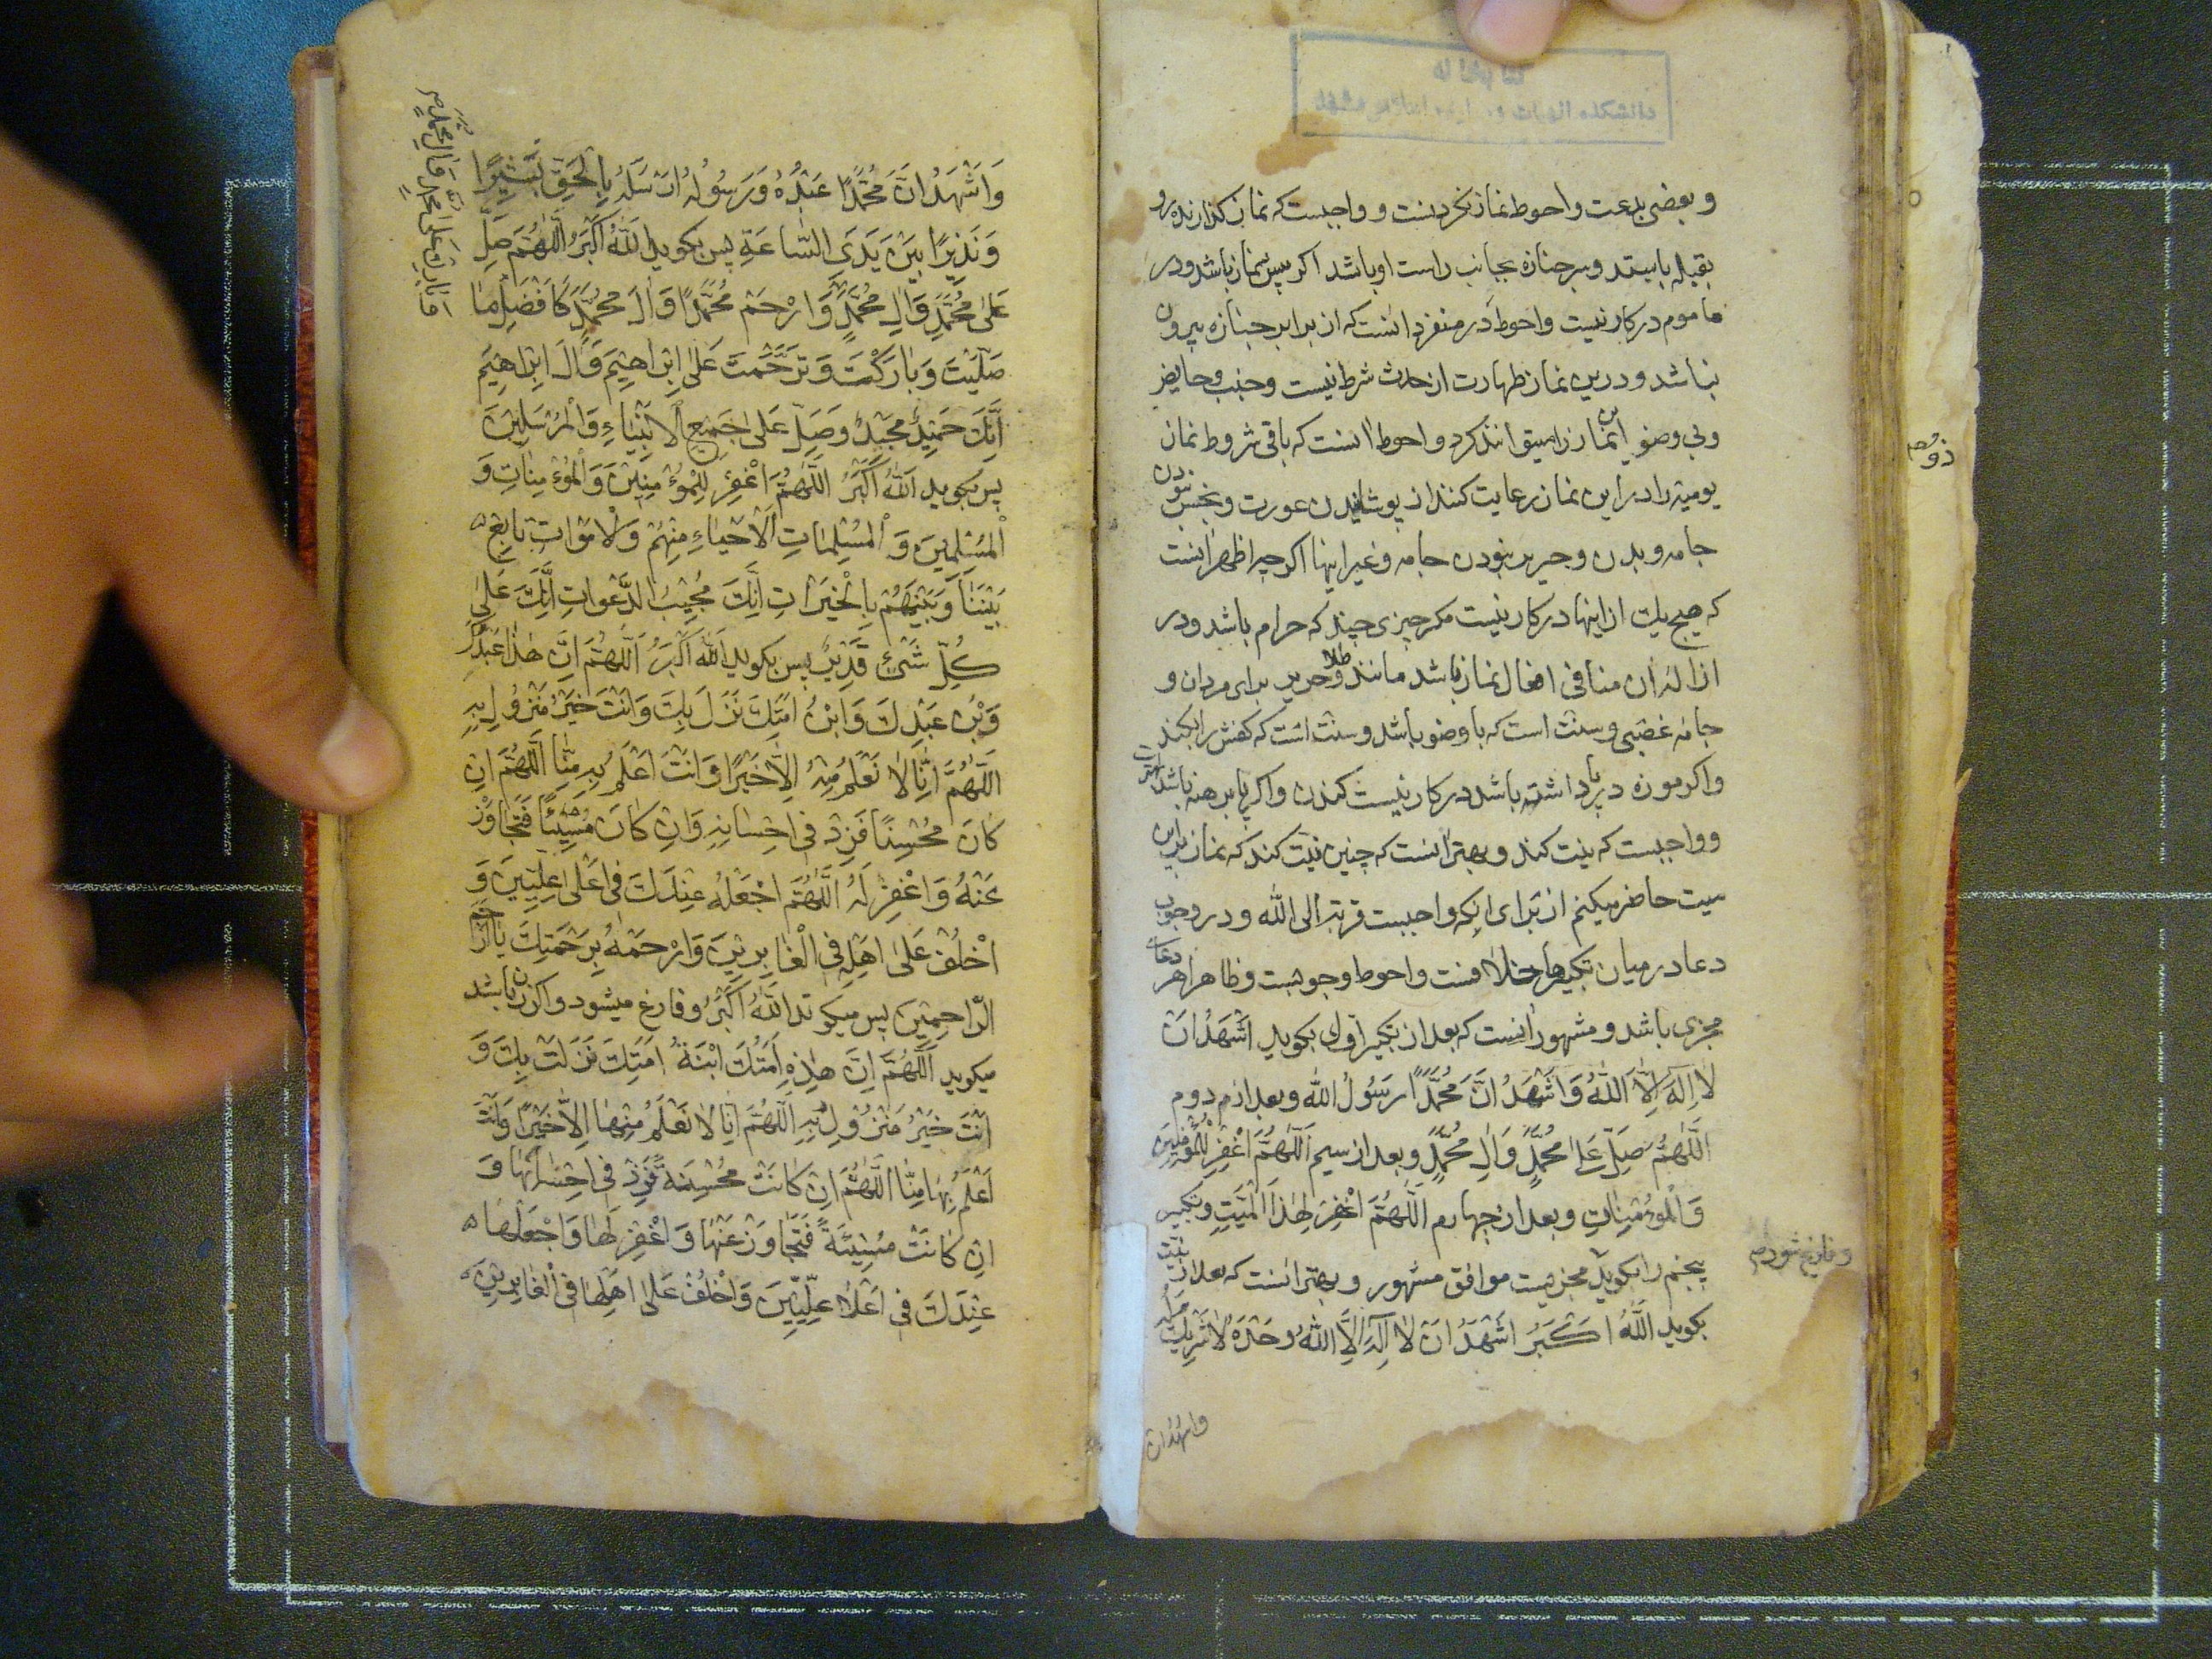 و بعضی بدعت و احوط نماز نکردنست و واجبست که نماز کذارنده رو
بقبله بایستد و سر جنازه بجانب راست او باشد اکر پیش نماز باشد و در
ماموم در کار نیست و احوط در منفرد انست که از برابر جنازه بیرون
نباشد و در این نماز طهارت از حدث شرط نیست و جنب و حایض
و بی وضو این نماز را میتوانند کرد و احوط انست که باقی شروط نماز
یومیه را در این نماز رعایت کنند از پوشانیدن عورت و نجس نبودن
جامه و بدن و حریر نبودن جامه و غیر اینها اکرچه اظهر انست
که هیچ یك از اینها در کار نیست مکر چیزی چند که حرام باشد و در
ازاله ان منافی افعال نماز باشد مانند طلا و حریر برای مردان و
جامه غصبی و سنت است که با وضو باشد و سنت است که کفش را بکند
و اکر موزه در پا داشته باشد در کار نیست کندن و اکر پا برهنه باشد بهتر است
و واجبست که نیت کند و بهتر انست که چنین نیت کند که نماز بر این
میت حاضر میکنم از برای انکه واجبست قربة الی الله و در وجوب
دعا در میان تکبیرها خلافست و احوط وجوبست و ظاهرا هر دعای
مجزی باشد و مشهور انست که بعد از تکبیر اول بکوید اَشْهَدُ اَنْ
لا اِلَهَ اِلَّا اللّٰهُ وَ اَشْهَدُ اَنَّ مُحَمَّدًا رَسُولُ اللّٰه و بعد از دوم
اَللّٰهُمَّ صَلِّ عَلی مُحَمَّدٍ وَ الِ مُحَمَّدٍ و بعد از سیم اَللّٰهُمَّ اغْفِرْ لِلْمُؤْمِنِینَ
وَ الْمُؤْمِنٰاتِ و بعد از چهارم اَللّٰهُمَّ اغْفِرْ لِهٰذَا الْمَیِّتِ و تکبیر
پنجم را بکوید مجزیست موافق مشهور و بهتر انست که بعد از نیت
و فارغ شود صح
بکوید اَللّٰهُ اَکْبَرُ اَشْهَدُ اَنْ لٰا اِلٰهَ اِلَّا اللّٰهُ وَحْدَهُ لٰا شَرِیكَ لَهُ
و اشهد ان
وَ اَشْهَدُ اَنَّ مُحَمَّدًا عَبْدُهُ وَ رَسُولُهُ اَرْسَلَهُ بِالْحَقِّ بَشِیرًا
وَ نَذِیرًا بَیْنَ یَدَیِ السّٰاعَةِ پس بکوید اَللّٰهُ اَکْبَرُ اَللّٰهُمَّ صَلِّ
عَلیٰ مُحَمَّدٍ وَ اٰلِ مُحَمَّدٍ وَ ارْحَمْ مُحَمَّدًا وَ اٰلَ مُحَمَّدٍ کَاَفْضَلِ مٰا
وَ بٰارِكْ عَلیٰ مُحَمَّدٍ وَ اٰلِ مُحَمَّدٍ صح
صَلَّیْتَ وَ بٰارَکْتَ وَ تَرَحَّمْتَ عَلیٰ اِبْرٰاهِیمَ وَ اٰلِ اِبْرٰاهِیمَ
اِنَّكَ حَمِیدٌ مَجِیدٌ وَ صَلِّ عَلیٰ جَمِیعِ الْاَنْبِیٰاءِ وَ الْمُرْسَلِینَ
پس بکوید اَللّٰهُ اَکْبَرُ اَللّٰهُمَّ اغْفِرْ لِلْمُؤْمِنِینَ وَ الْمُؤْمِنٰاتِ وَ
الْمُسْلِمِینَ وَ الْمُسْلِمٰاتِ الْاَحْیٰاءِ مِنْهُمْ وَ الْاَمْوٰاتِ تٰابِعْ
بَیْنَنٰا وَ بَیْنَهُمْ بِالْخَیْرٰاتِ اِنَّكَ مُجِیبُ الدَّعَوٰاتِ اِنَّكَ عَلیٰ
کُلِّ شَیْئٍ قَدِیرٌ پس بکوید اَللّٰهُ اَکْبَرُ اَللّٰهُمَّ اِنَّ هٰذٰا عَبْدُكَ
وَ ابْنُ عَبْدِكَ وَ ابْنُ اَمَتِكَ نَزَلَ بِكَ وَ اَنْتَ خَیْرُ مَنْزُولٍ بِهِ
اَللّٰهُمَّ اِنّٰا لٰا نَعْلَمُ مِنْهُ اِلّٰا خَیْرًا وَ اَنْتَ اَعْلَمُ بِهِ مِنّٰا اَللّٰهُمَّ اِنْ
کٰانَ مُحْسِنًا فَزِدْ فی اِحْسٰانِهِ وَ اِنْ کٰانَ مُسِیئًا فَتَجٰاوَزْ
عَنْهُ وَ اغْفِرْ لَهُ اَللّٰهُمَّ اجْعَلْهُ عِنْدَكَ فی اَعْلیٰ عِلِّیِّینَ وَ
اخْلُفْ عَلیٰ اَهْلِهِ فِی الْغٰابِرِینَ وَ ارْحَمْهُ بِرَحْمَتِكَ یٰا اَرْحَمَ
الرّٰاحِمِینَ پس میکوید اَللّٰهُ اَکْبَرُ و فارغ میشود و اکر زن باشد
میکوید اَللّٰهُمَّ اِنَّ هٰذِهِ اَمَتُكَ ابْنَةُ اَمَتِكَ نَزَلَتْ بِكَ وَ
اَنْتَ خَیْرُ مَنْزُولٍ بِهِ اَللّٰهُمَّ اِنّٰا لٰا نَعْلَمُ مِنْهٰا اِلّٰا خَیْرًا وَ اَنْتَ
اَعْلَمُ بِهٰا مِنّٰا اَللّٰهُمَّ اِنْ کٰانَتْ مُحْسِنَةً فَزِدْ فی اِحْسٰانِهٰا وَ
اِنْ کٰانَتْ مُسِیئَةً فَتَجٰاوَزْ عَنْهٰا وَ اغْفِرْ لَهٰا وَ اجْعَلْهٰا
عِنْدَكَ فی اَعْلیٰ عِلِّیِّینَ وَ اخْلُفْ عَلیٰ اَهْلِهٰا فِی الْغٰابِرِینَ